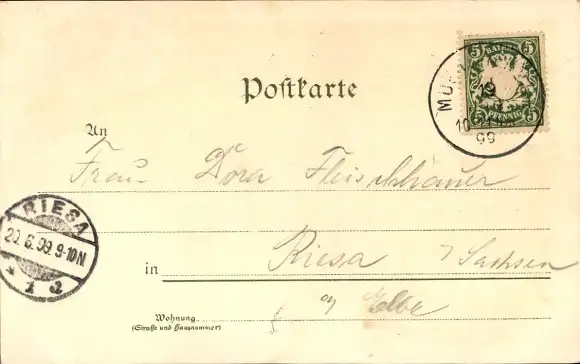 Postkarte
5 BAYERN 5
PFENNIG
5 5
19
10
99
An
Frau Dora Fleischhauer
RIESA
20.6.99.9-10N
* 1 d
in Riesa / Sachsen
a/ Elbe
Wohnung
(Straße und Hausnummer)